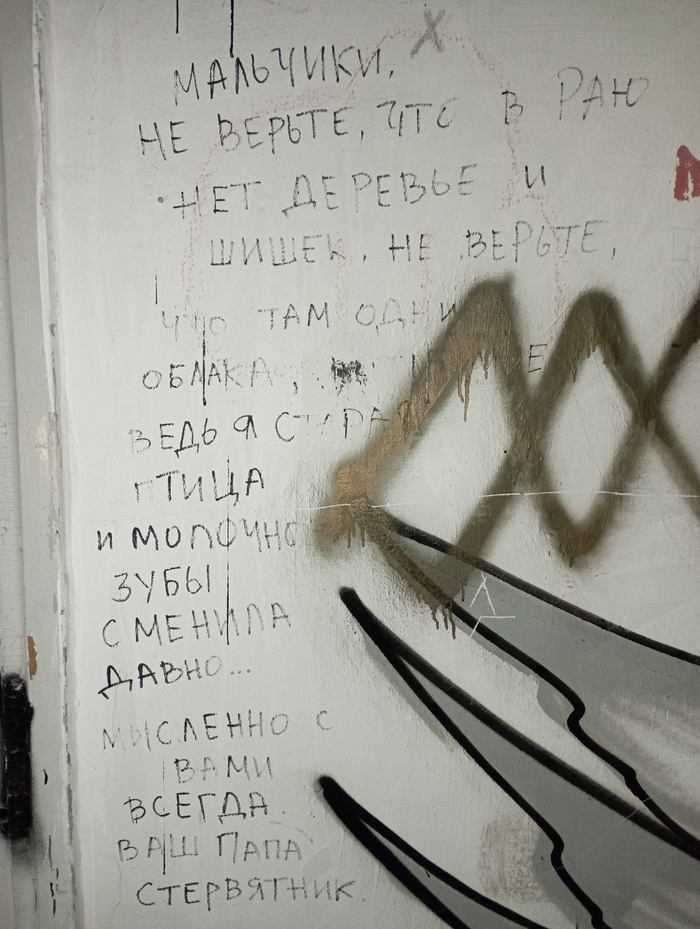 МАЛЬЧИКИ,
НЕ ВЕРЬТЕ, ЧТО В РАЮ
НЕТ ДЕРЕВЬЕ И
ШИШЕК. НЕ ВЕРЬТЕ,
ЧТО ТАМ ОДНИ
ОБЛАКА,
ВЕДЬ Я СТАРАЯ
ПТИЦА
И МОЛОЧНО
ЗУБЫ
СМЕНИЛА
ДАВНО...
МЫСЛЕННО С
ВАМИ
ВСЕГДА.
ВАШ ПАПА
СТЕРВЯТНИК.